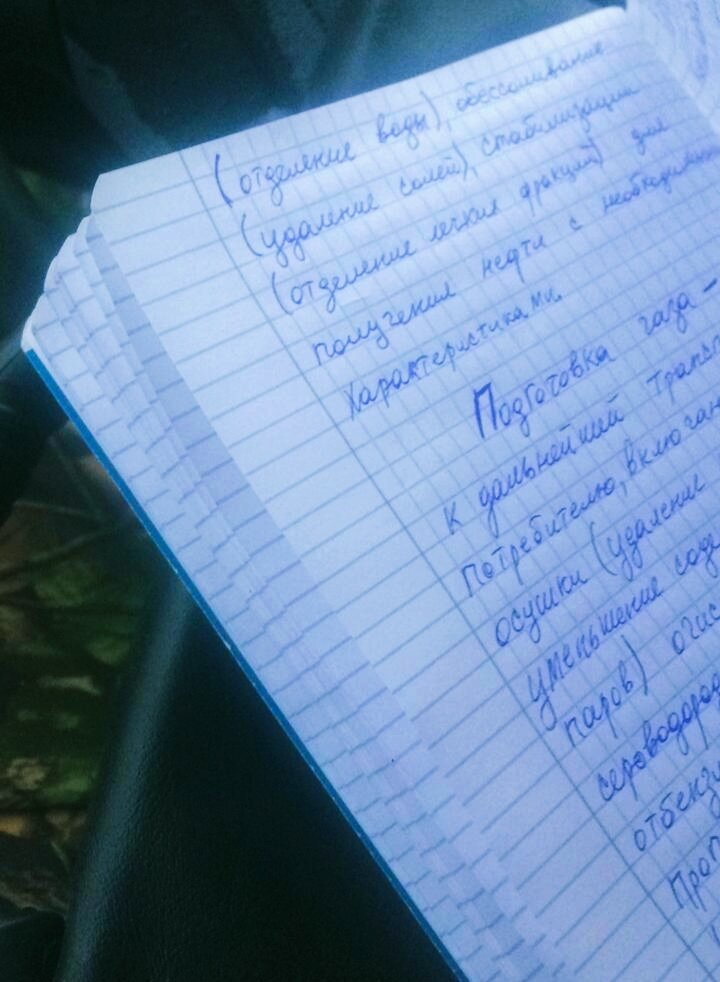 (отделение воды), обессоливание
(удаление солей), стабилизация
(отделение легких фракций) для
получения нефти с необходимыми
характеристиками.
Подготовка газа –
к дальнейшей трансп
потребителю, включая
осушки (удаление
уменьшение соде
паров) очис
сероводород
отбенз
Проп